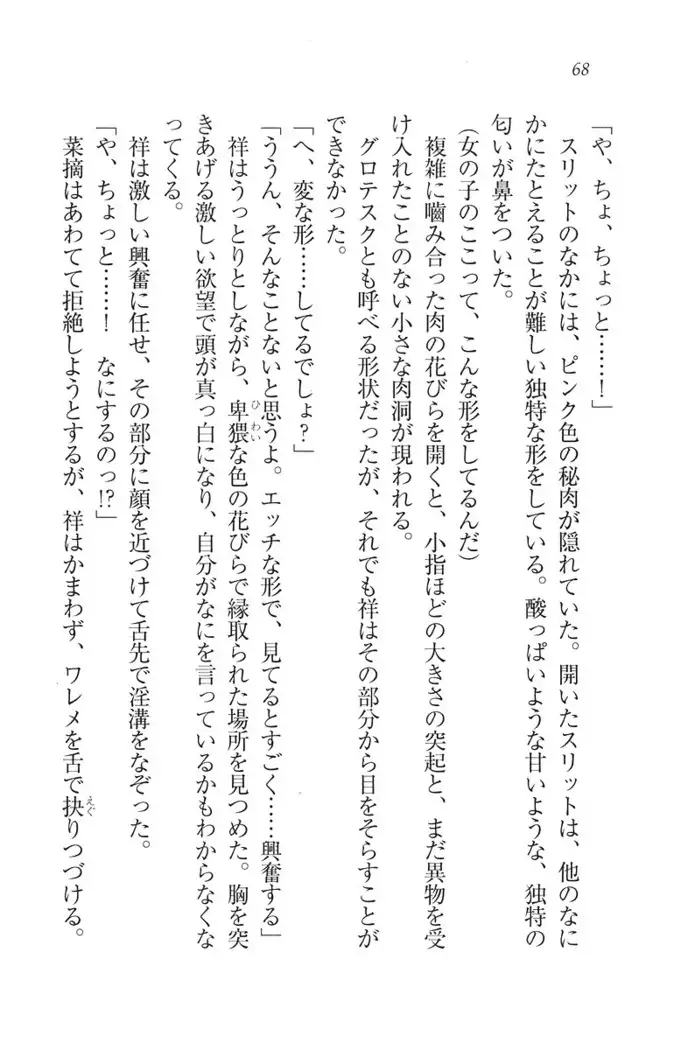 68
「や、ちょ、ちょっと……！」
スリットのなかには、ピンク色の秘肉が隠れていた。開いたスリットは、他のなに
かにたとえることが難しい独特な形をしている。酸っぱいような甘いような、独特の
匂いが鼻をついた。
（女の子のここって、こんな形をしてるんだ）
複雑に嚙み合った肉の花びらを開くと、小指ほどの大きさの突起と、まだ異物を受
け入れたことのない小さな肉洞が現われる。
グロテスクとも呼べる形状だったが、それでも祥はその部分から目をそらすことが
できなかった。
「へ、変な形……してるでしょ？」
「ううん、そんなことないと思うよ。エッチな形で、見てるとすごく……興奮する」
祥はうっとりとしながら、卑猥な色の花びらで縁取られた場所を見つめた。胸を突
きあげる激しい欲望で頭が真っ白になり、自分がなにを言っているかもわからなくな
ってくる。
祥は激しい興奮に任せ、その部分に顔を近づけて舌先で淫溝をなぞった。
「や、ちょっと……！　なにするのっ!?」
菜摘はあわてて拒絶しようとするが、祥はかまわず、ワレメを舌で抉りつづける。